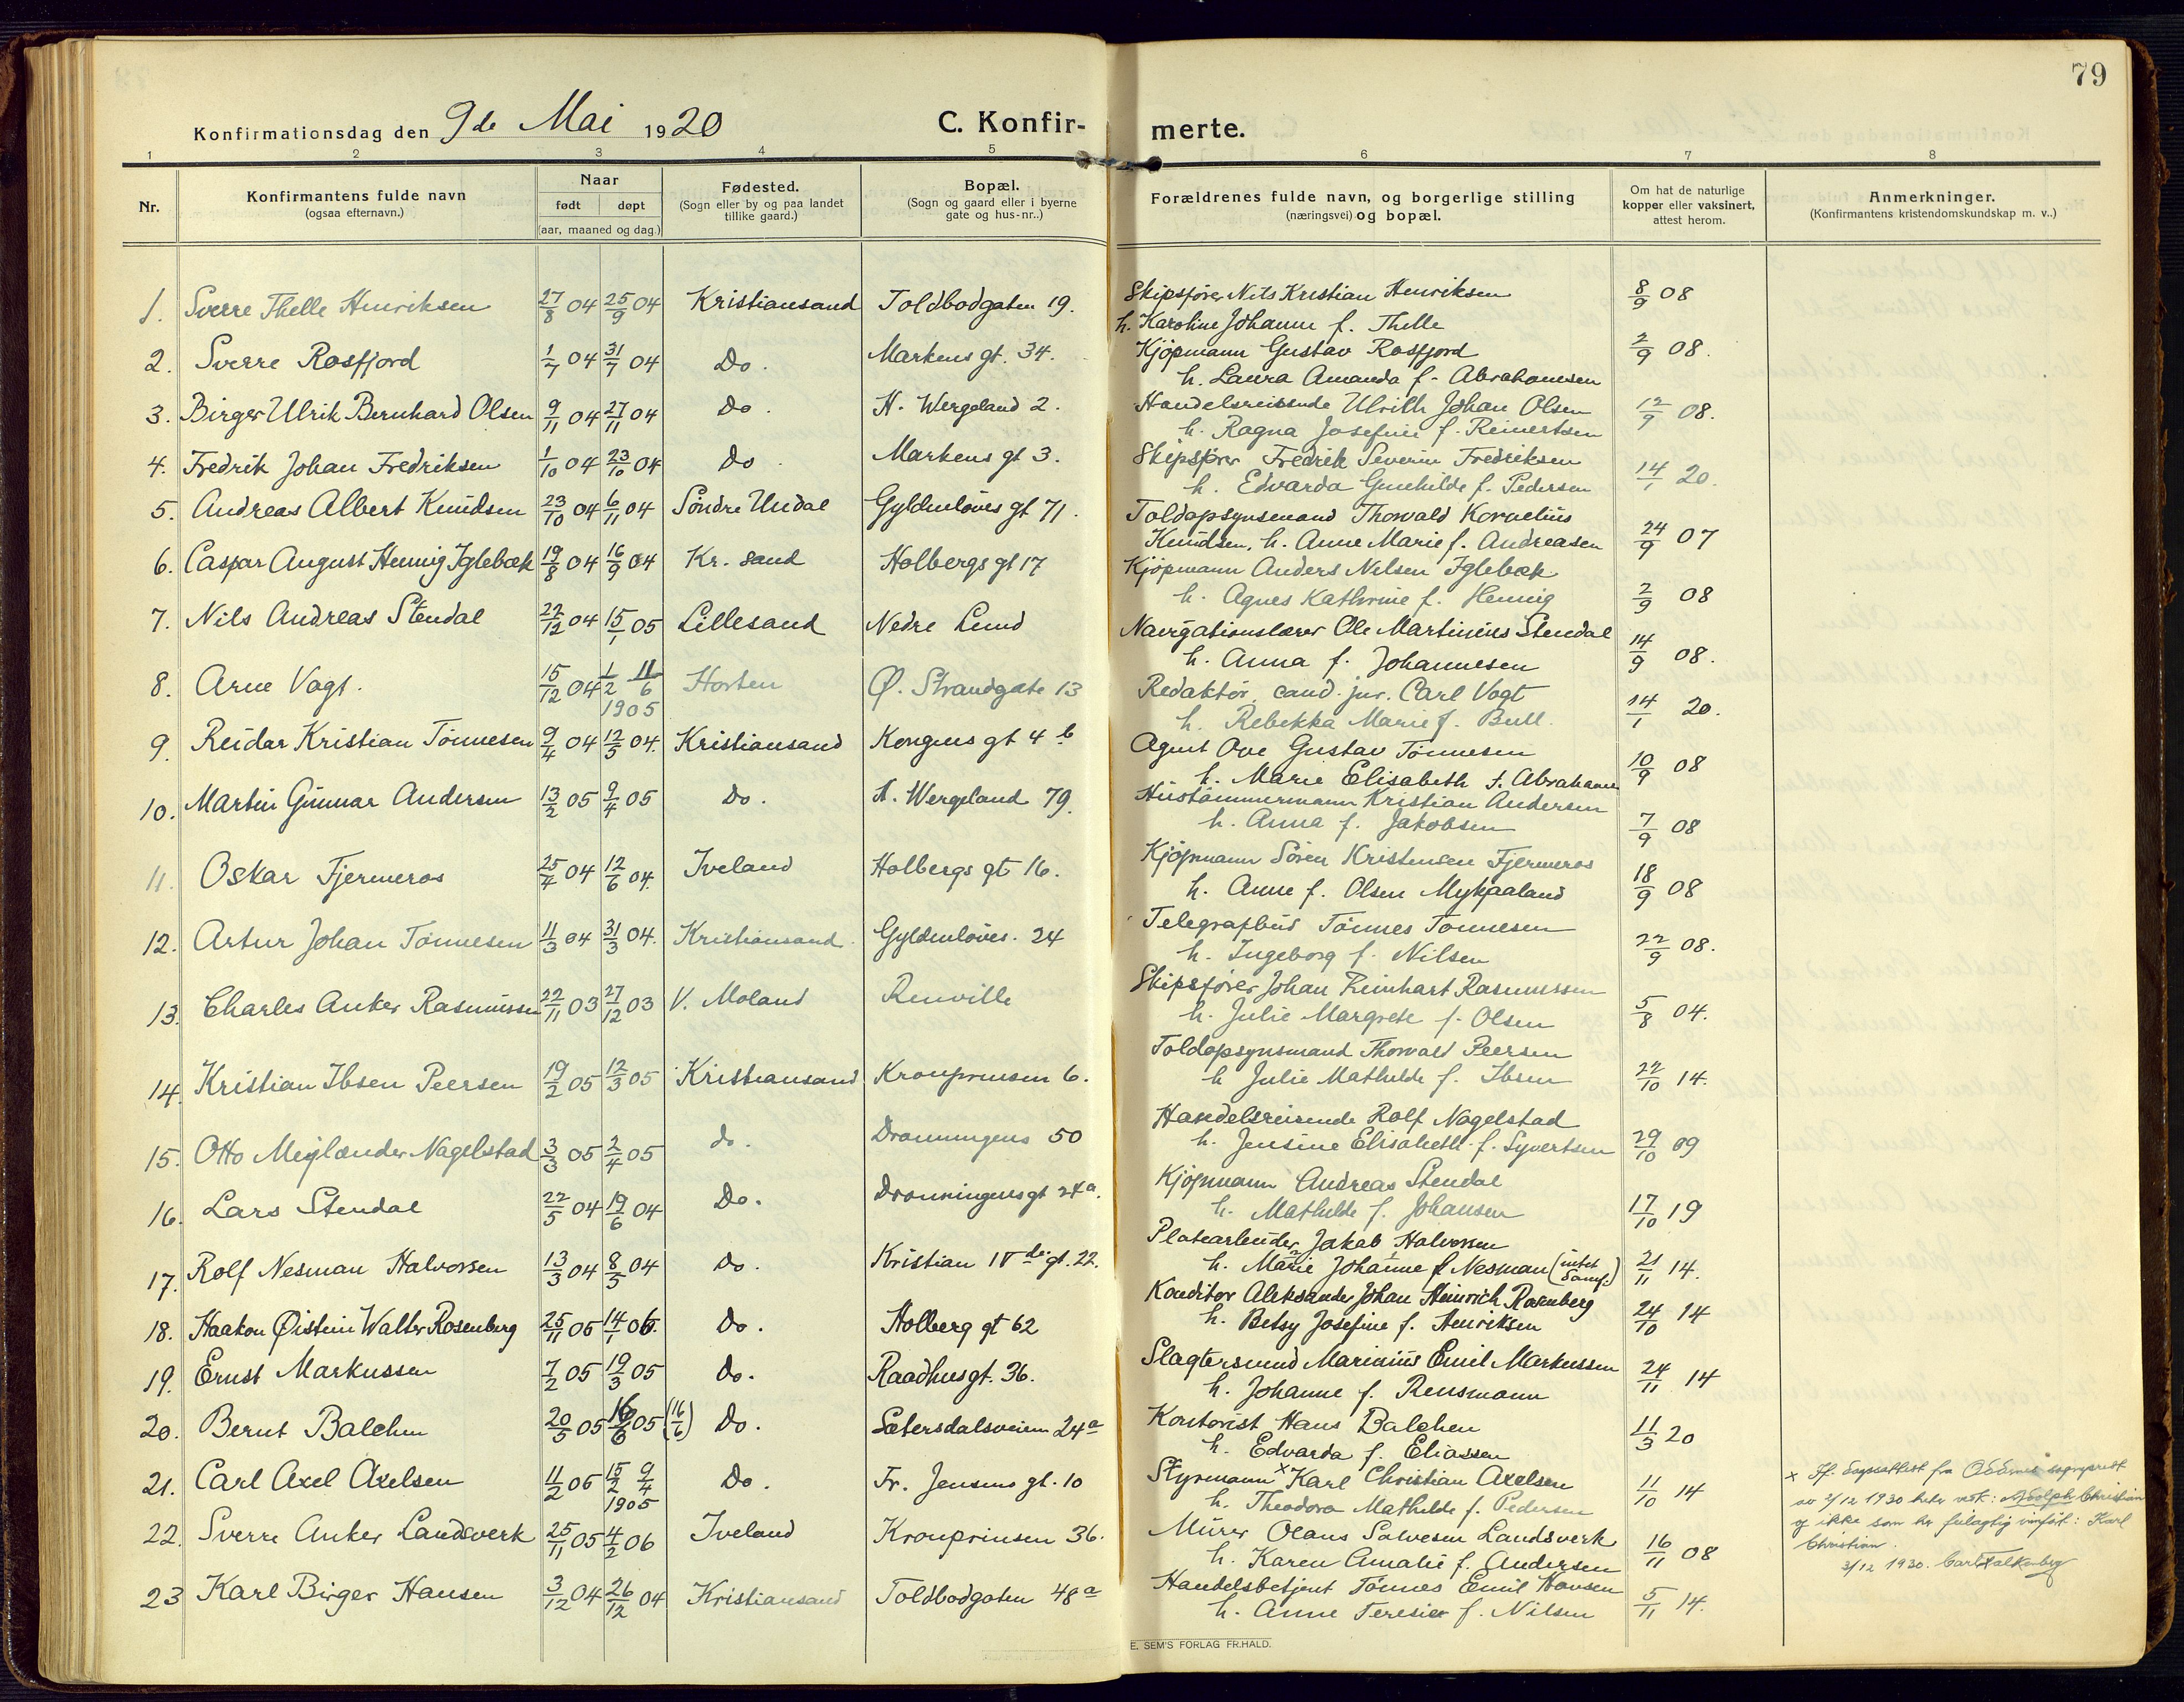 79
Konfirmationsdag den 9de Mai 1920 C. Konfirmerte.
1 2 3 4 5 6 7 8
Nr. Konfirmantens fulde navn (ogsaa efternavn.) Naar født døpt (aar, maaned og dag.) Fødested. (Sogn eller by og paa landet tillike gaard.) Bopæl. (Sogn og gaard eller i byerne gate og hus-nr..) Forældrenes fulde navn, og borgerlige stilling (næringsvei) og bopæl. Om hat de naturlige kopper eller vaksinert, attest herom. Anmerkninger. (Konfirmantens kristendomskundskap m. v..)
1. Sverre Thelle Henriksen 27/8 04 25/9 04 Kristiansand Toldbodgaten 19. Skipsfører Nils Kristian Henriksen 8/9 08
h. Karoline Johanne f. Thelle
2. Sverre Rosfjord 1/7 04 31/7 04 Do. Markens gt. 34. Kjøpmann Gustav Rosfjord 2/9 08.
h. Laura Amanda f. Abrahamsen
3. Birger Ulrik Bernhard Olsen 9/11 04 27/11 04 Do. H. Wergeland 2. Handelsreisende Ulrith Johan Olsen 12/9 08.
h. Ragna Josefine f. Reinertsen
4. Fredrik Johan Fredriksen 1/10 04 23/10 04 Do. Markens gt 3. Skipsfører Fredrik Severin Fredriksen
h. Edvarda Gunhilde f. Pedersen 14/1 20.
5. Andreas Albert Knudsen 23/10 04 6/11 04 Søndre Undal Gyldenløves gt 71. Toldopsynsmand Thorvald Kornelius
Knudsen, h. Anne Marie f. Andreasen 24/9 07
6. Caspar August Hennig Iglebæk 19/8 04 16/9 04 Kr. sand Holbergs gt 17 Kjøpmann Anders Nilsen Iglebæk
h. Agnes Kathrine f. Hennig 2/9 08
7. Nils Andreas Stendal 22/12 04 15/1 05 Lillesand Nedre Lund Navigationslærer Ole Martinius Stendal
h. Anna f. Johannesen 14/9 08.
8. Arne Vogt. 15/12 04 1/2 11/6 1905 Horten Ø. Strandgate 13 Redaktør, cand. jur. Carl Vogt
h. Rebekka Marie f. Bull. 14/1 20.
9. Reidar Kristian Tønnesen 9/4 04 12/5 04. Kristiansand Kongens gt 4 b Agent Ove Gustav Tønnesen
h. Marie Elisabeth f. Abrahams 10/9 08
10. Martin Gunnar Andersen 13/2 05 9/4 05 Do. H. Wergeland 79. Hustømmermann Kristian Andersen
h. Anna f. Jakobsen 7/9 08
11. Oskar Fjermeros 25/4 04 12/6 04. Iveland Holbergs gt 16. Kjøpmann Søren Kristensen Fjermeros
h. Anne f. Olsen Mykjaaland 18/9 08
12. Artur Johan Tønnesen 11/3 04 31/3 04. Kristiansand. Gyldenløves. 24 Telegrafbud Tønnes Tønnesen
h. Ingeborg f. Nilsen 22/9 08.
13. Charles Anker Rasmussen 22/11 03 27/12 03 V. Moland Renville Skipsfører Johan Reinhart Rasmussen
h. Julie Margrete f. Olsen 5/8 04.
14. Kristian Ibsen Peersen 19/2 05 12/3 05 Kristiansand Kronprinsen 6. Toldopsynsmand Thorvald Peersen
h Julie Mathilde f. Ibsen 22/10 14.
15. Otto Meylænder Nagelstad 3/3 05 2/4 05 do. Dronningens 50 Handelsreisende Rolf Nagelstad
h. Jensine Elisabeth f. Syvertsen 29/10 09
16. Lars Stendal 22/5 04 19/6 04 Do. Dronningensgt 24a. Kjøpmann Andreas Stendal
h. Mathilde f. Johansen 17/10 19
17. Rolf Nesman Halvorsen 13/3 04 8/5 04 Do. Kristian IVde gt. 22. Platearbeider Jakob Halvorsen
h. Marie Johanne f Nesman (intet samf.) 21/11 14.
18. Haakon Øistein Walter Rosenberg 25/11 05 14/1 06. Do. Holberg gt 62 Konditor Aleksander Johan Heinrich Rosenberg
h. Betsy Josefine f. Henriksen 24/10 14
19. Ernst Markussen 7/2 05 19/3 05 Do. Raadhusgt. 36. Slagtersvend Marinius Emil Markussen
h. Johanne f. Rensmann 24/11 14
20. Bernt Balchen 20/5 05 16/6 05 (16/6) Do. Sætersdalsveien 24a Kontorist Hans Balchen
h. Edvarda f. Eliassen 11/3 20
21. Carl Axel Axelsen 11/2 05 15/2 9/4 1905 Do. Fr. Jensens gt. 10 Styrmann x Karl Christian Axelsen
h. Theodora Mathilde f. Pedersen 11/10 14
x Jf. daapsattest fra Oddernes sogneprest
av 2/12 1930 heter vedk: Adolph Christian
og ikke som her feilagtig innført: Karl
Christian.
3/12 1930. Carl Falkenberg
22. Sverre Anker Landsverk 25/11 05 4/2 06 Iveland Kronprinsen 36. Murer Olaus Salvesen Landsverk
h. Karen Amalie f. Andersen 16/11 08
23 Karl Birger Hansen 3/12 04 26/12 04 Kristiansand Toldbodgaten 48a Handelsbetjent Tønnes Emil Hansen
h. Anne Teresie f. Nilsen 5/11 14.
E. SEM'S FORLAG FR.HALD.